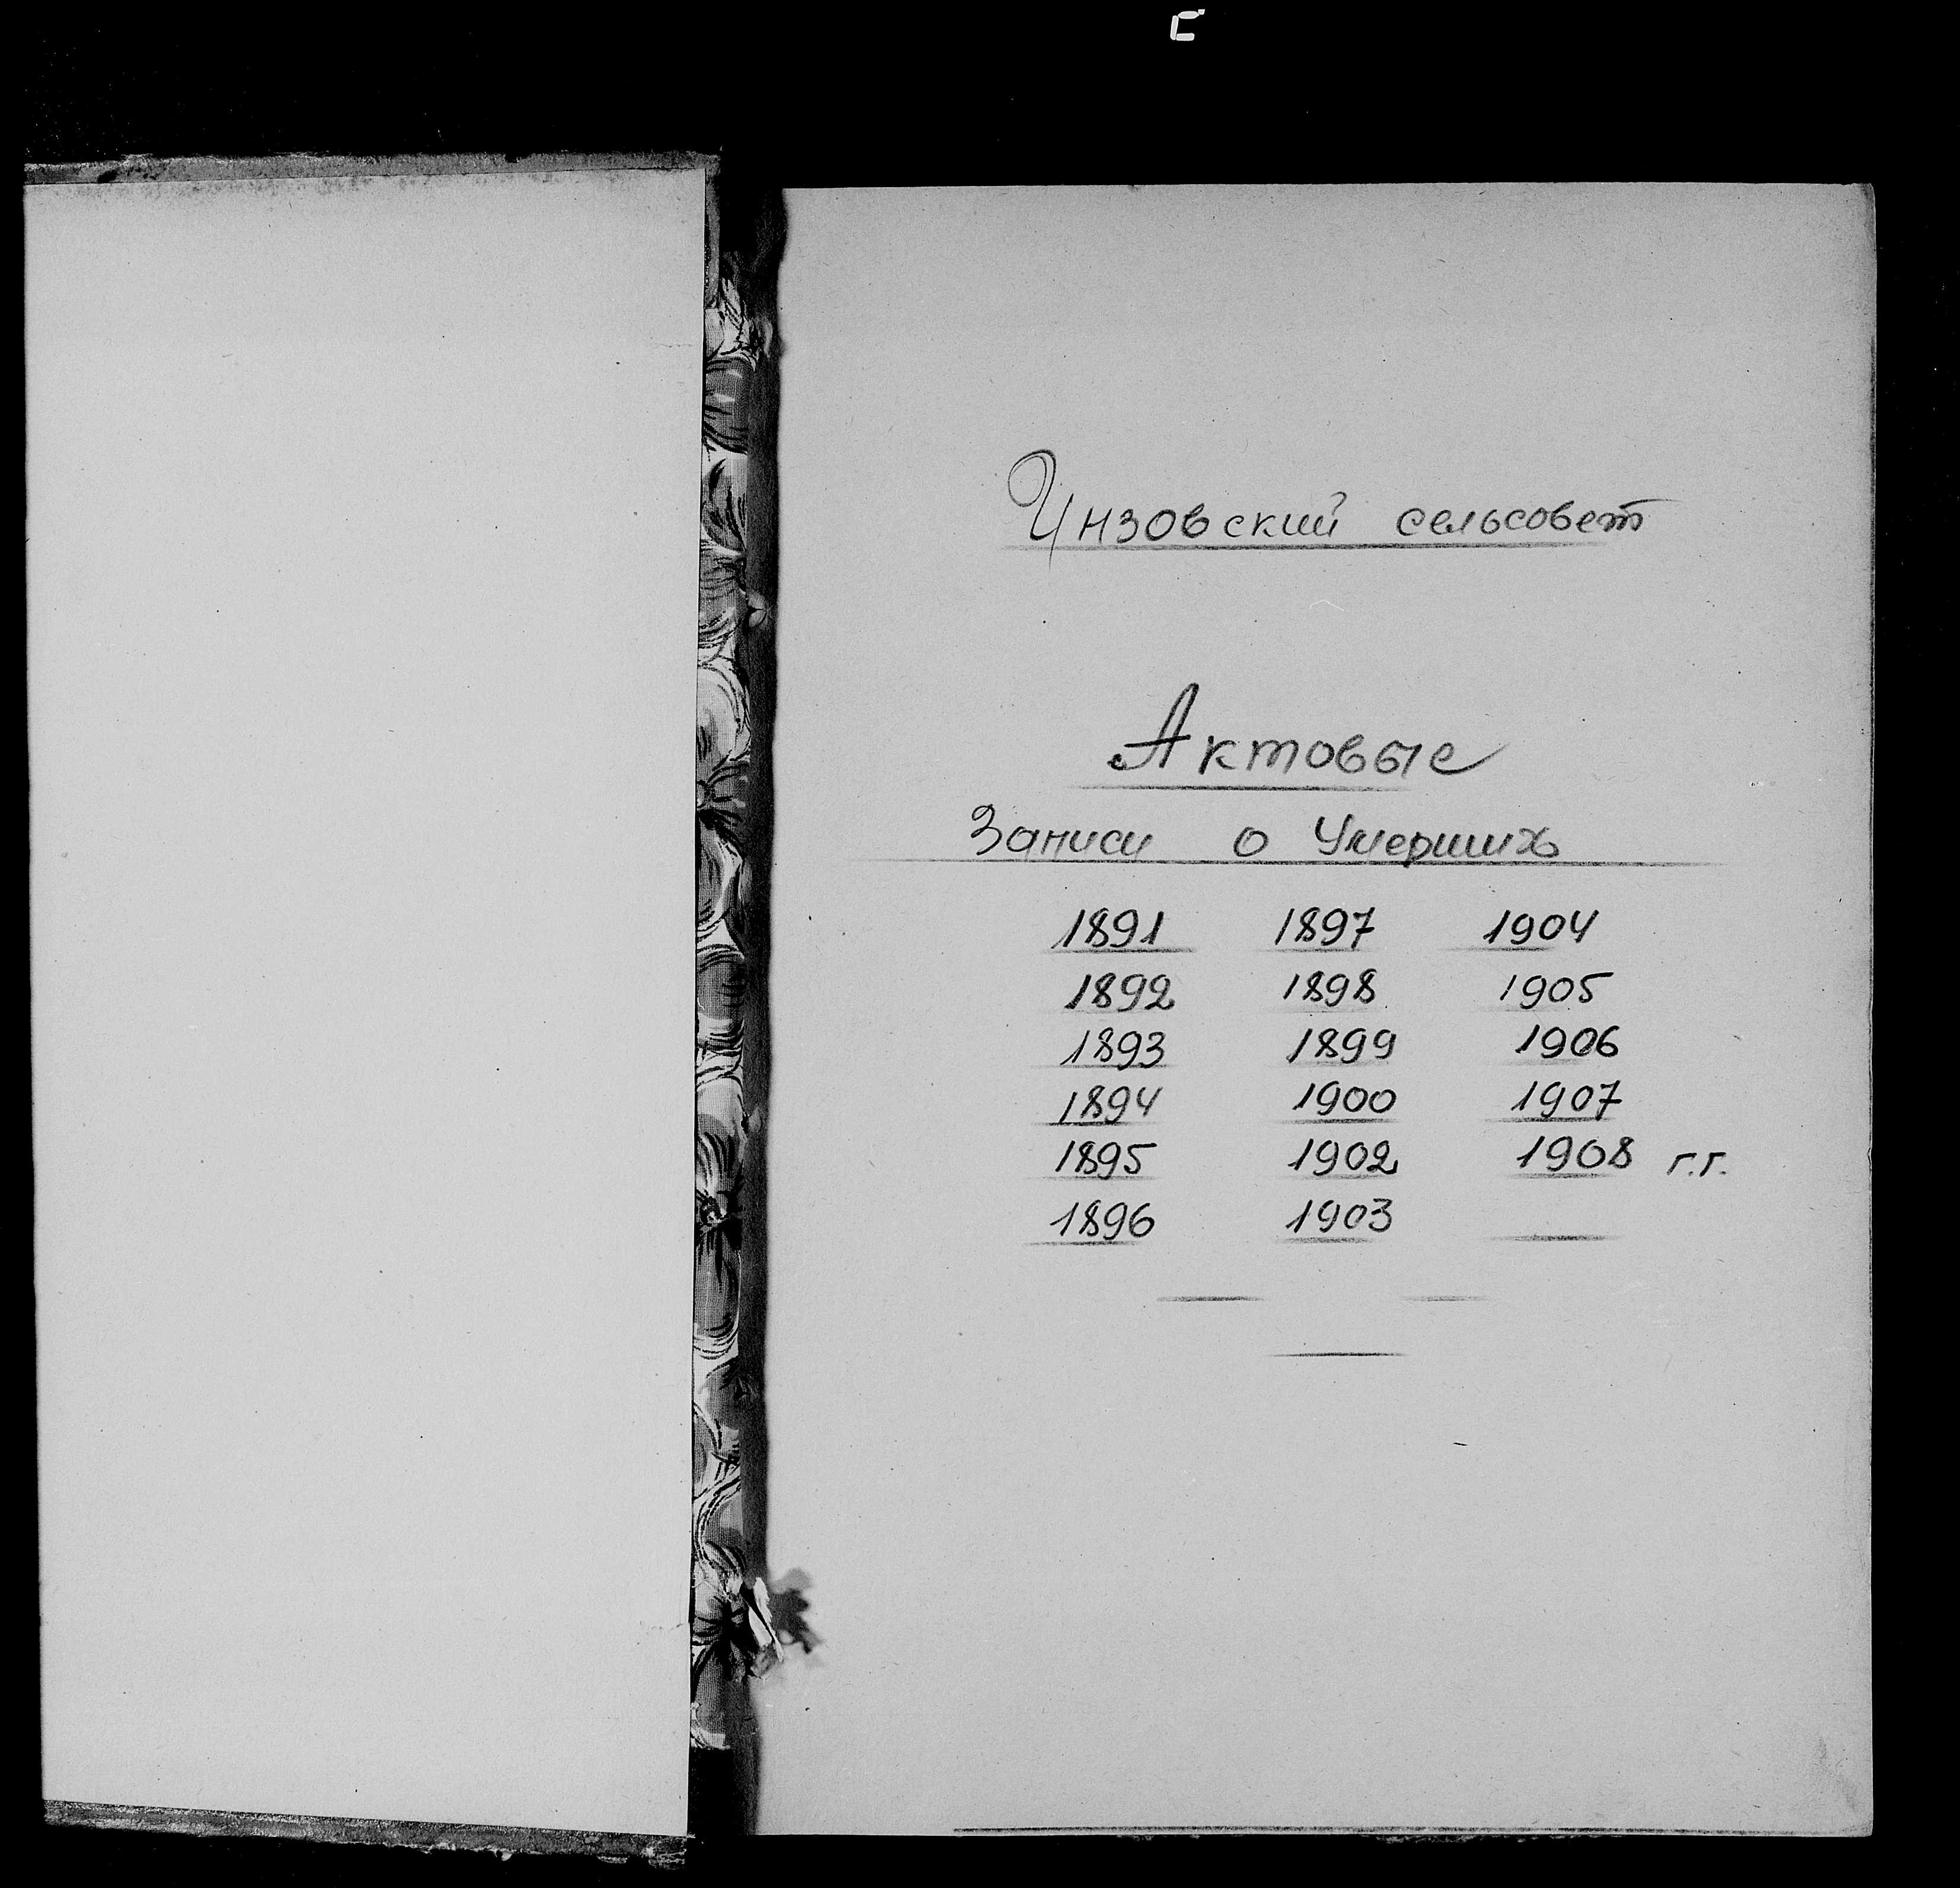 Инзовский сельсовет
Актовые
Записи о Умерших
1891 1897 1904
1892 1898 1905
1893 1899 1906
1894 1900 1907
1895 1902 1908 г.г.
1896 1903